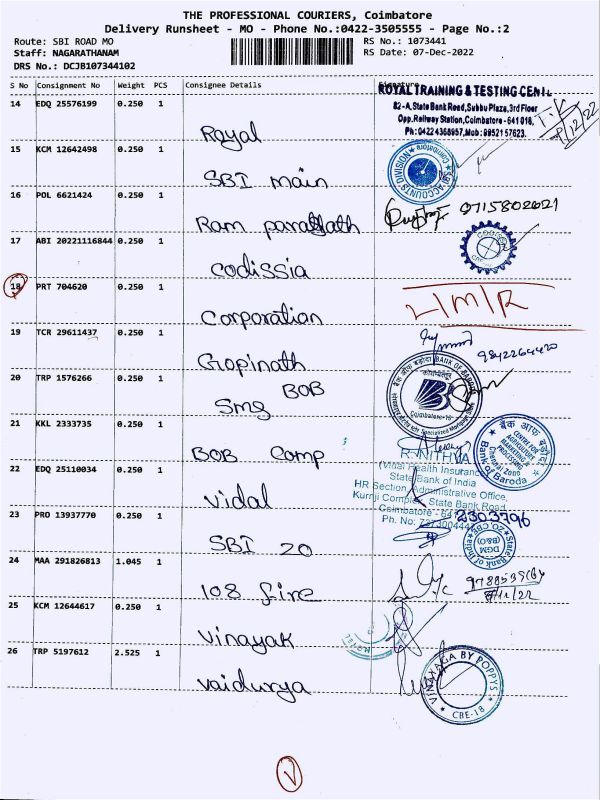 THE PROFESSIONAL COURIERS, Coimbatore
Delivery Runsheet - MO - Phone No.:0422-3505555 - Page No.:2
Route: SBI ROAD MO
RS No.: 1073441
Staff: NAGARATHANAM
RS Date: 07-Dec-2022
DRS No.: DCJB107344102
S No Consignment No Weight PCS Consignee Details Signature
14 EDQ 25576199 0.250 1
Royal
ROYAL TRAINING & TESTING
82-A, State Bank Road, Subbu Plaza, 3rd Floor
Opp. Railway Station, Coimbatore - 641 018,
Ph: 0422 4368957, Mob: 9952157623.
15 KCM 12642498 0.250 1
SBI main
SBI ACCOUNTS DIVISION
16 POL 6621424 0.250 1
Ram
9715802021
17 ABI 20221116844 0.250 1
Codissia
CODISSIA
18 PRT 704620 0.250 1
Corporation
L/M/R
19 TCR 29611437 0.250 1
Gopinath
9842264420
20 TRP 1576266 0.250 1
Smg BOB
BANK OF BARODA
21 KKL 2333735 0.250 1
BOB Comp
बैंक ऑफ़ बड़ौदा
Bank of Baroda
22 EDQ 25110034 0.250 1
Vidal
R. NITHYA
(Vidal Health Insurance
State Bank of India
HR Section, Administrative Office,
State Bank Road
Coimbatore
Ph. No:
23 PRO 13937770 0.250 1
SBI 20
2303796
State Bank of India
DGM
(B&O)
24 MAA 291826813 1.045 1
108 fire
25 KCM 12644617 0.250 1
Vinayak
26 TRP 5197612 2.525 1
Vaidurya
VINAYAGA BY POPPYS
CBE-18